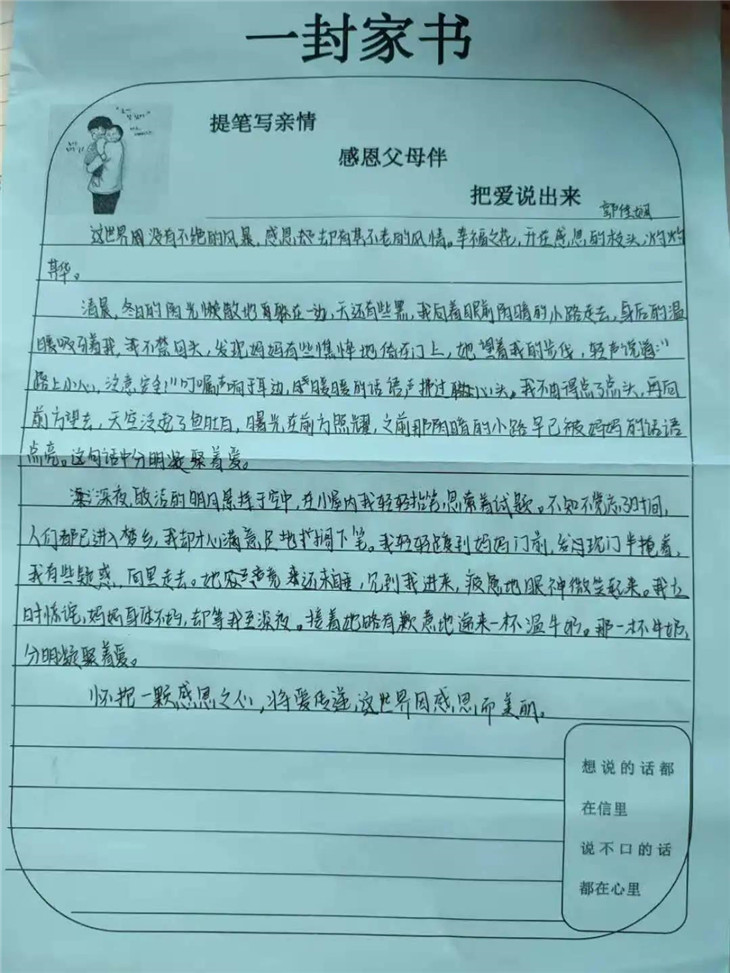 一封家书
提笔写亲情
感恩父母伴
把爱说出来
这世界固没有不绝的风暴，感恩却有其不老的风情。幸福之花，开在感恩的枝头，灼灼
其华。
清晨，冬日的阳光懒散地躲在一边，天还有些黑，我向着眼前阴暗的小路走去，身后的温
暖吸引着我，我不禁回头，发现妈妈有些憔悴地倚在门上，她望着我的步伐，轻声说道：“
路上小心，注意安全！”叮嘱声响于耳边，暖暖的话语声拂过心头。我不由得点了点头，再向
前方望去，天空泛起了鱼肚白，曙光在前方照耀，之前那阴暗的小路早已被妈妈的话语
点亮。这句话中分明凝聚着爱。
深夜，皎洁的明月悬挂于空中，在小屋内我轻轻抬笔，思索着试题。不知不觉忘了时间，
人们都已进入梦乡，我却才心满意足地搁下笔。我轻轻走到妈妈门前，发现门半掩着，
我有些疑惑，向里走去。她竟还未睡，见到我进来，疲惫地眼神微笑起来。我
时惊诧，妈妈身体不好，却等我至深夜。接着她略有歉意地递来一杯温牛奶。那一杯牛奶，
分明凝聚着爱。
怀抱一颗感恩之心，将爱传递，这世界因感恩而美丽。
想说的话都
在信里
说不口的话
都在心里